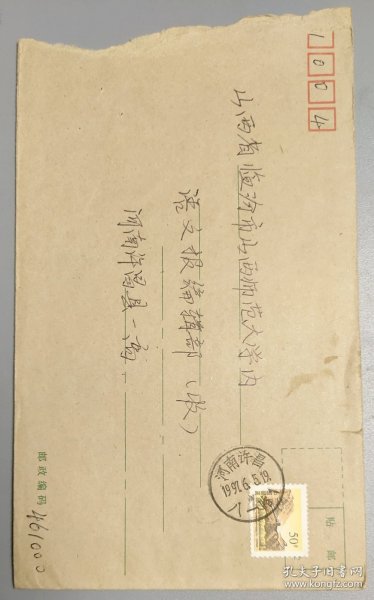 1004
山西省临汾市山西师范大学内
语文报编辑部（收）
河南许昌县一高
邮政编码 461000
河南许昌
1997.6.5.19
50分
贴 邮
孔夫子旧书网